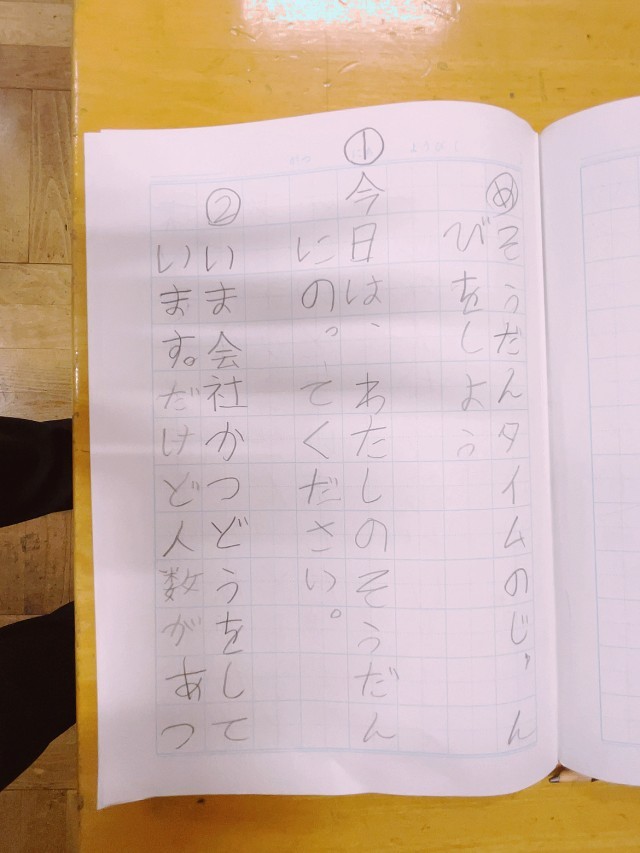 ㋱そうだんタイムのじゅん
びをしよう
①今日は、わたしのそうだん
にのってください。
②いま会社かつどうをして
います。だけど人数があつ